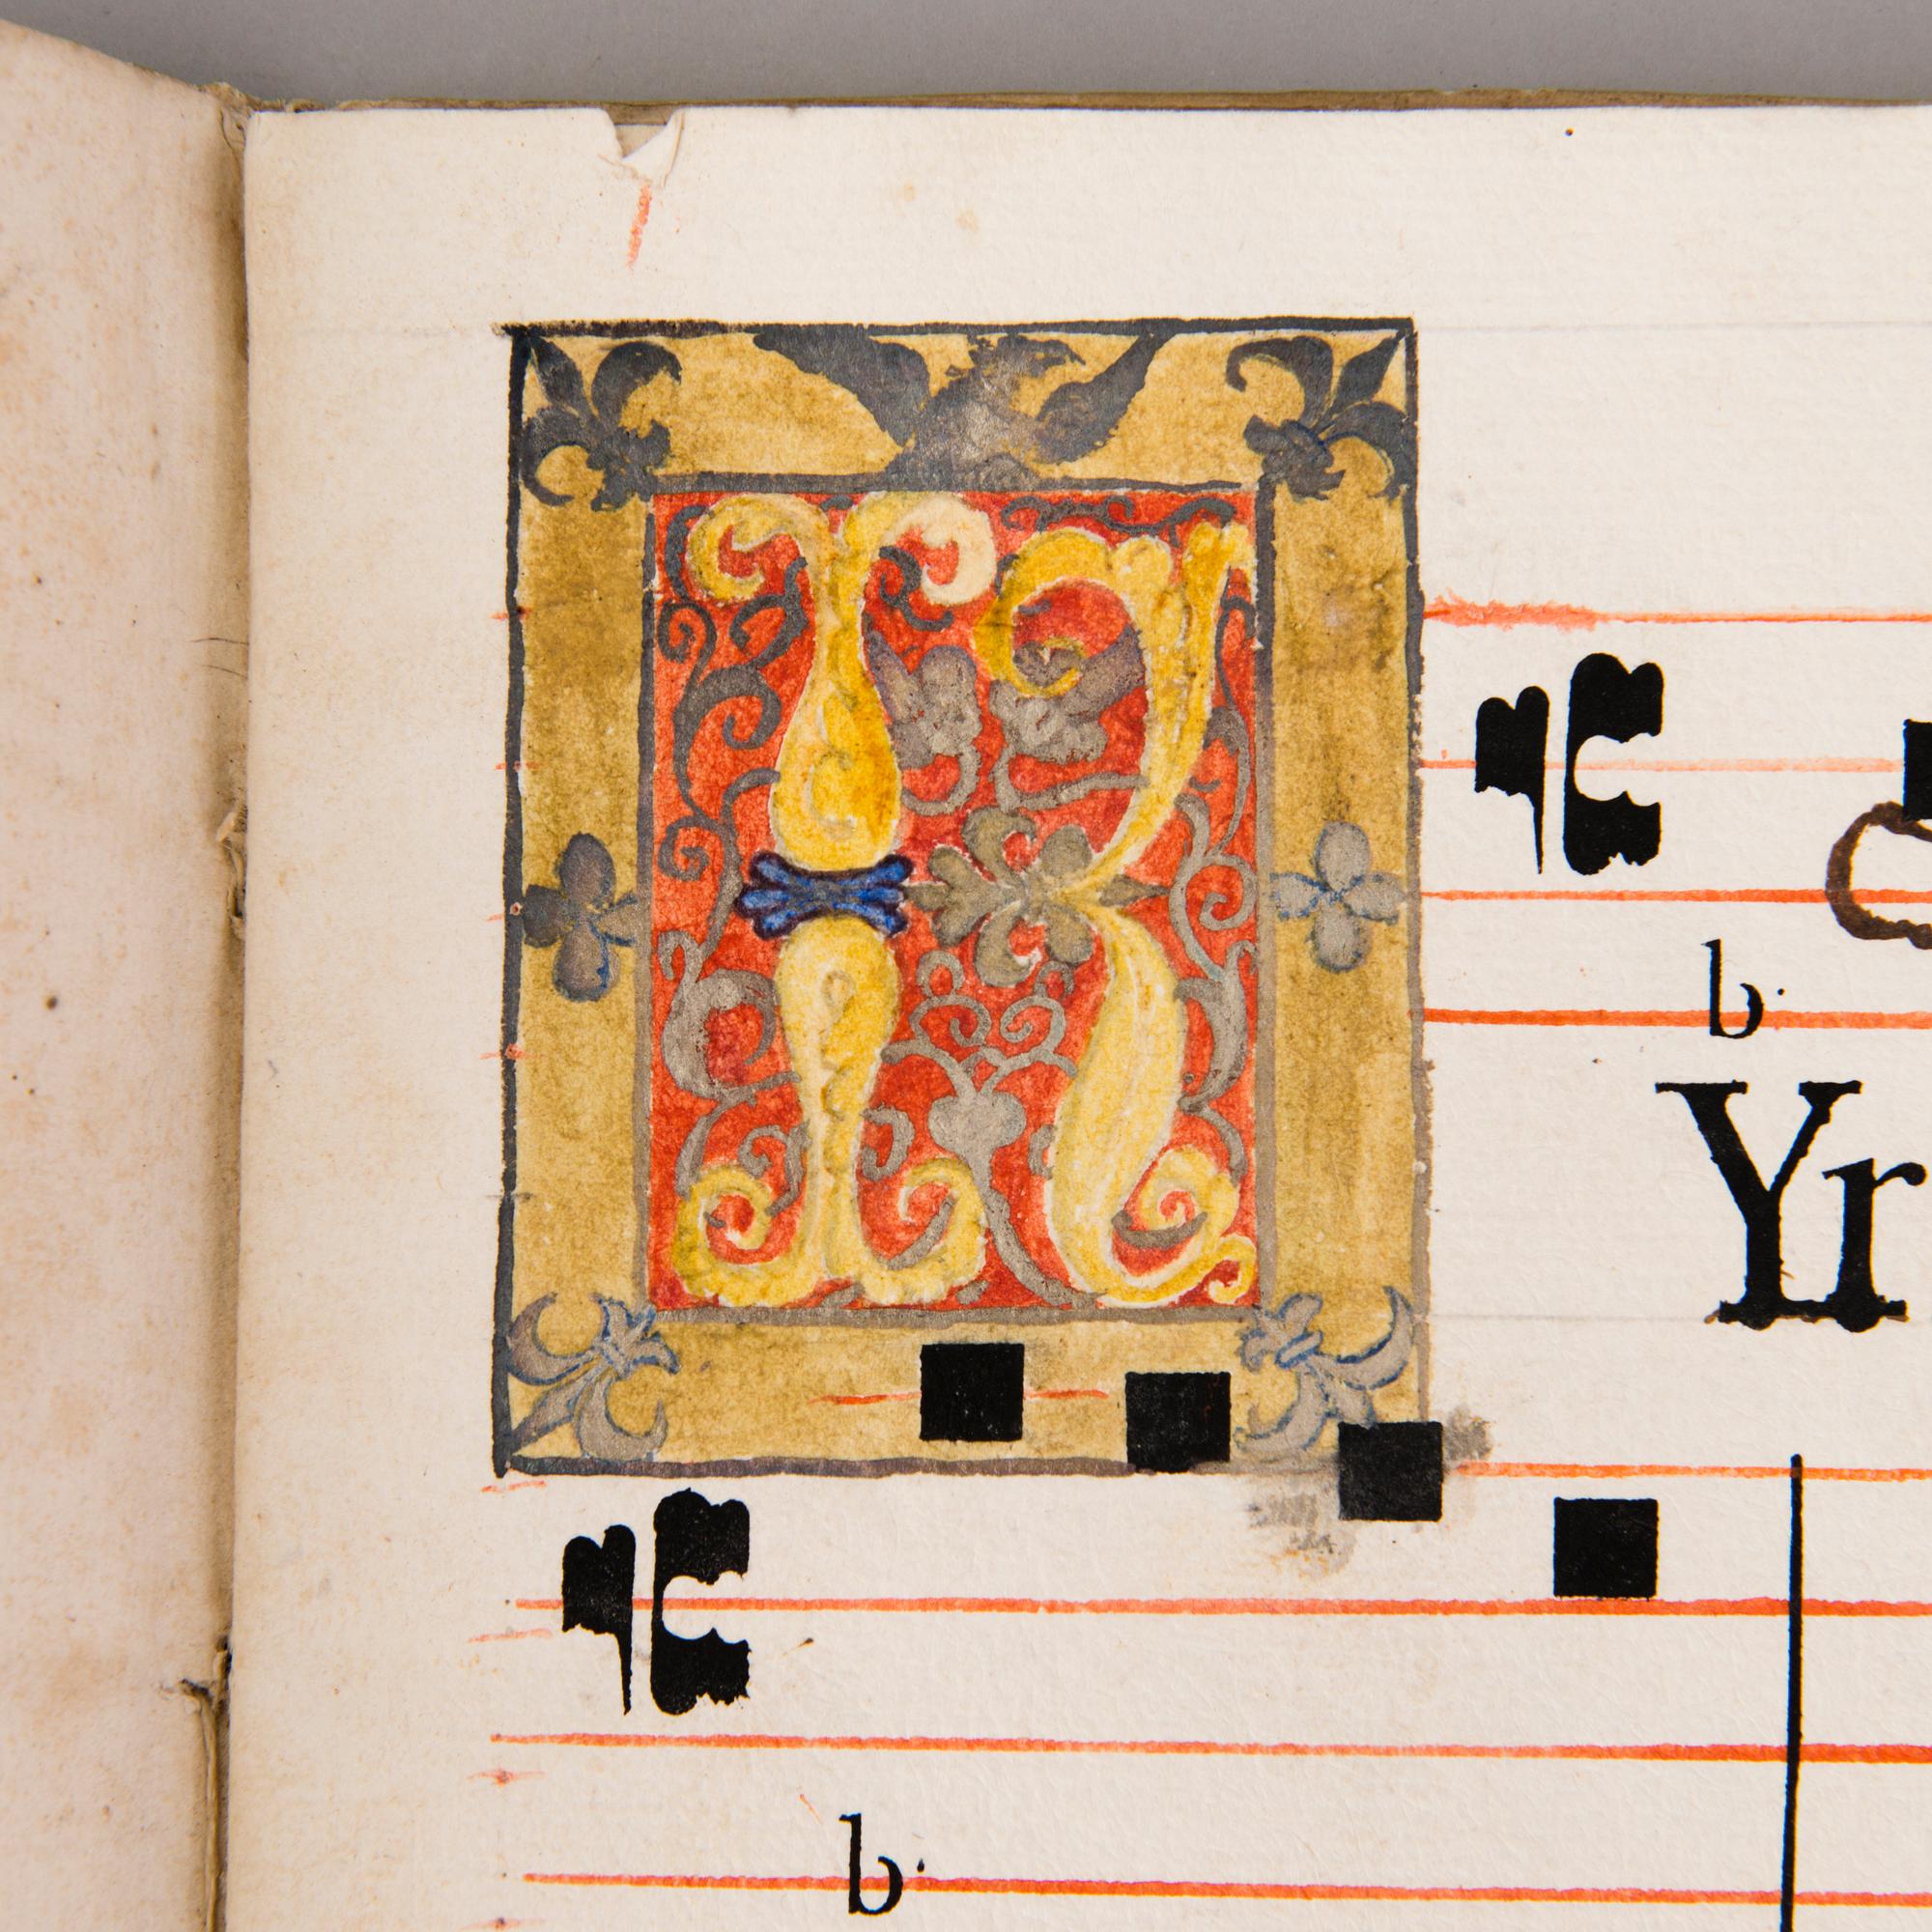 K
b
Yr
b